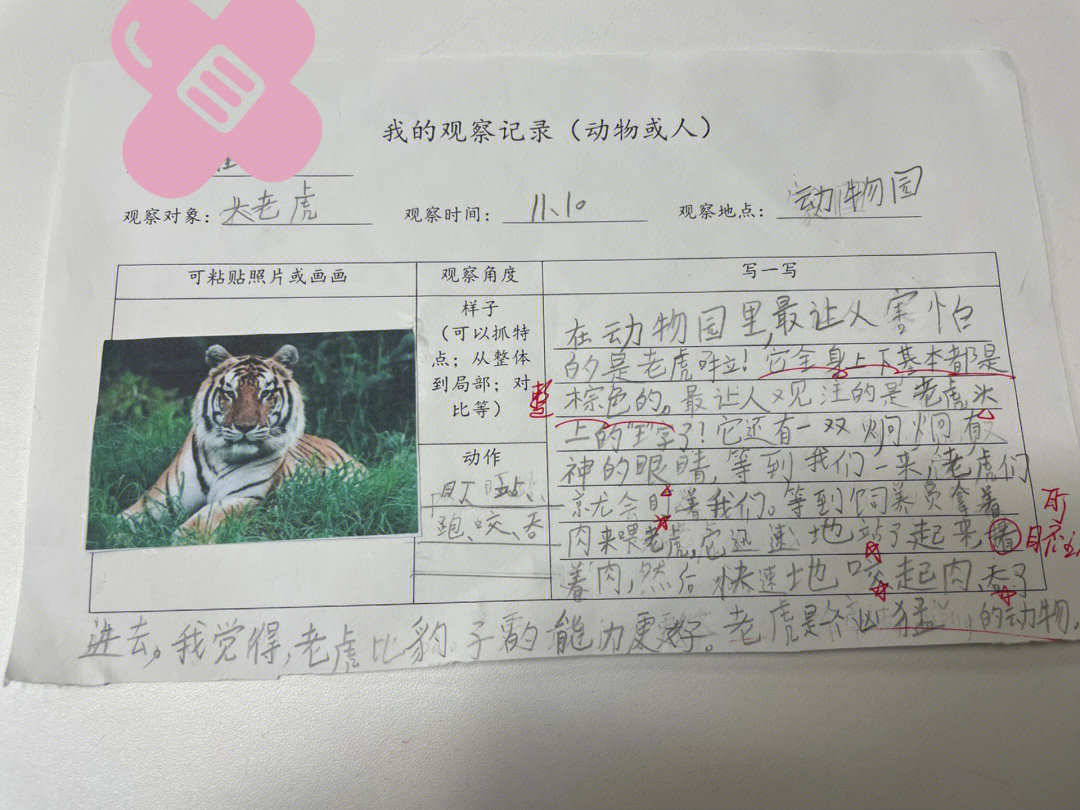 我的观察记录（动物或人）
观察对象：大老虎 观察时间：11、10 观察地点：动物园
可粘贴照片或画画 观察角度 写一写
样子
（可以抓特
点；从整体
到局部；对
比等）
动作
盯、晒、站、
跑、咬、吞
在动物园里，最让人害怕
的是老虎啦！它全身上下基本都是
棕色的。最让人关注的是老虎头
上的“王”字了！它还有一双炯炯有
神的眼睛，等到我们一来，老虎们
就会盯着我们。等到饲养员拿着
肉来喂老虎，它迅速地站了起来，
着肉，然后快速地咬起肉吞了
进去。我觉得，老虎比豹子的能力更好。老虎是个凶猛的动物。